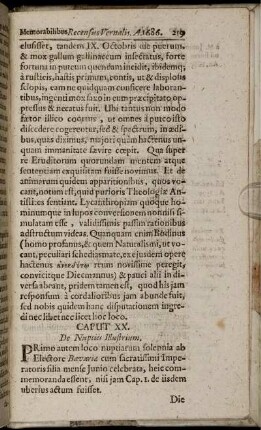 Memorabilibus Recensus Vernalis. A 1686. 219
elusisset, tandem IX. Octobris die puerum,
& mox gallum gallinaceum insectatus, forte
fortuna in puteum quendam incidit, ibidemq;
à rusticis, hastis primum, contis, ut & displosis
sclopis, eam ne quidquam conficere laboran-
tibus, ingenti mox saxo in eum præcipitato op-
pressus & necatus fuit. Ubi tantum non modo
fœtor illico coortus, ut omnes à puteo isto
discedere cogerentur, sed & spectrum, in ædi-
bus, quas diximus, majori quàm hactenus un-
quam immanitate sævire cœpit. Qua super
re Eruditorum quorundam mentem atque
sententiam exquisitam fuisse novimus. Et de
animarum quidem apparitionibus, quas vo-
cant, notum est, quid purioris Theologiæ An-
tistites sentiant. Lycanthropiam quoque ho-
minumque in lupos conversionem nonnisi si-
mulatam esse, validissimis passim rationibus
adstructum videas. Quanquam cùm Bodinus
(homo profanus, & quem Naturalismi, ut vo-
cant, peculiari schediasmate, ex ejusdem opere
hactenus rerum novissime peregit,
convicitque Diecmannus) & pauci alii in di-
versa abeant, pridem tamen est, quod his jam
responsum à cordatioribus jam abunde fuit,
sed nobis quidem hanc disputationem ingre-
di nec libet nec licet hoc loco.
CAPUT XX.
De Nuptiis Illustrium.
PRimo autem loco nuptiarum solennia ab
Electore Bavariæ cum sacratissimi Impe-
ratoris filia mense Junio celebrata, heic com-
memoranda essent, nisi jam Cap. 1. de iisdem
uberius actum fuisset.
Die